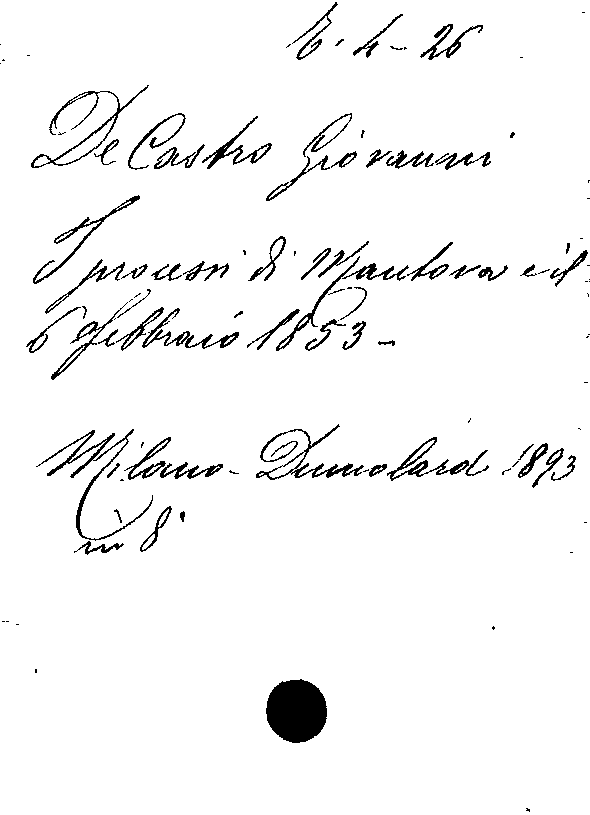 E. 4 - 26
De Castro Giovanni
I processi di Mantova e il
6 febbraio 1853 -
Milano - Dumolard 1893
in 8°